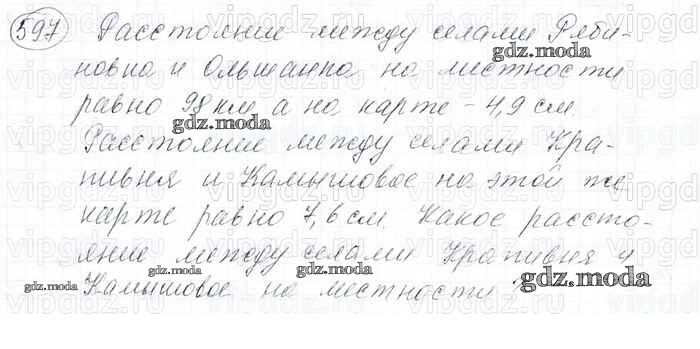 597 Расстояние между селами Ряби-
новка и Ольшанка на местности
равно 98 км а на карте - 4,9 см.
Расстояние между селами Кра-
пивня и Камышовое на этой же
карте равно 7,6 см. Какое рассто-
яние между селами Крапивня и
Камышовое на местности ?
gdz.moda
gdz.moda
gdz.moda
gdz.moda
gdz.moda
gdz.moda